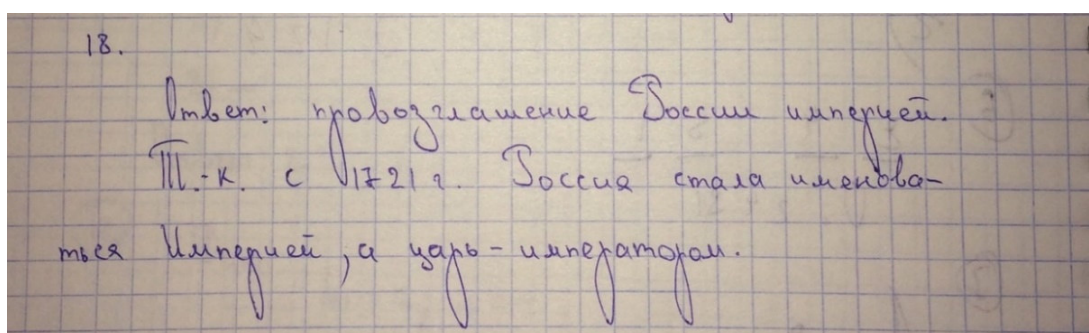 18.
Ответ: провозглашение России империей.
Т.-к. с 1721 г. Россия стала именова-
ться Империей, а царь - императором.